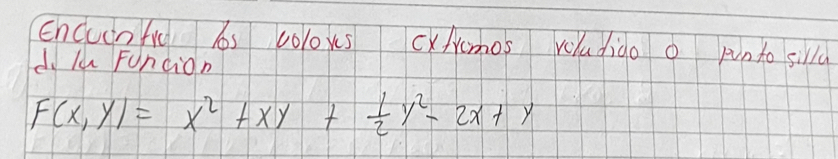 Encuentre los valores extremos relativo o punto silla
de la Función
F(x, y) = x² + xy + 1/2 y² - 2x + y